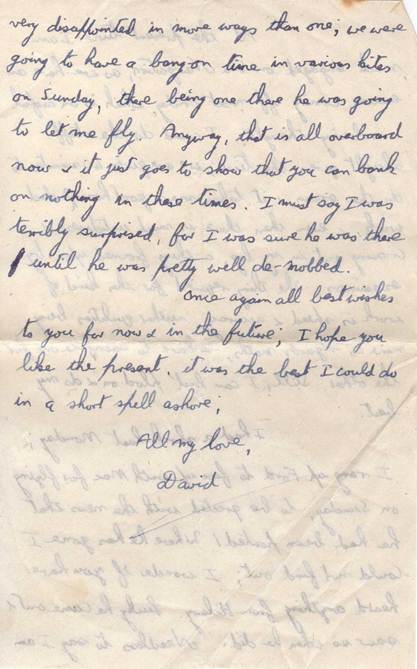 very disappointed in more ways than one; we were
going to have a bang on time in various kites
on Sunday, there being one there he was going
to let me fly. Anyway, that is all overboard
now & it just goes to show that you can bank
on nothing in these times. I must say I was
terribly surprised, for I was sure he was there
until he was pretty well de-mobbed.
Once again all best wishes
to you for now & in the future; I hope you
like the present. it was the best I could do
in a short spell ashore;
All my love,
David